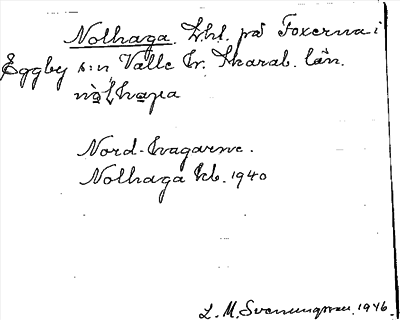 Nolhaga. Lht. på Foxerna i
Eggby s:n Valle hr. Skarab. län.
Nord-hagarne.
Nolhaga kb. 1940
L. M. Svenungsson. 1946.